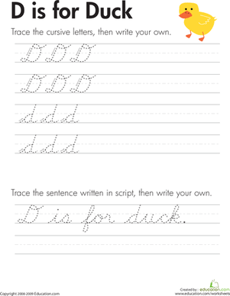 D is for Duck
Trace the cursive letters, then write your own.
D D D
D D D
d d d
d d d
Trace the sentence written in script, then write your own.
D is for duck.
Created by:
education.com
Copyright 2008-2009 Education.com
www.education.com/worksheets